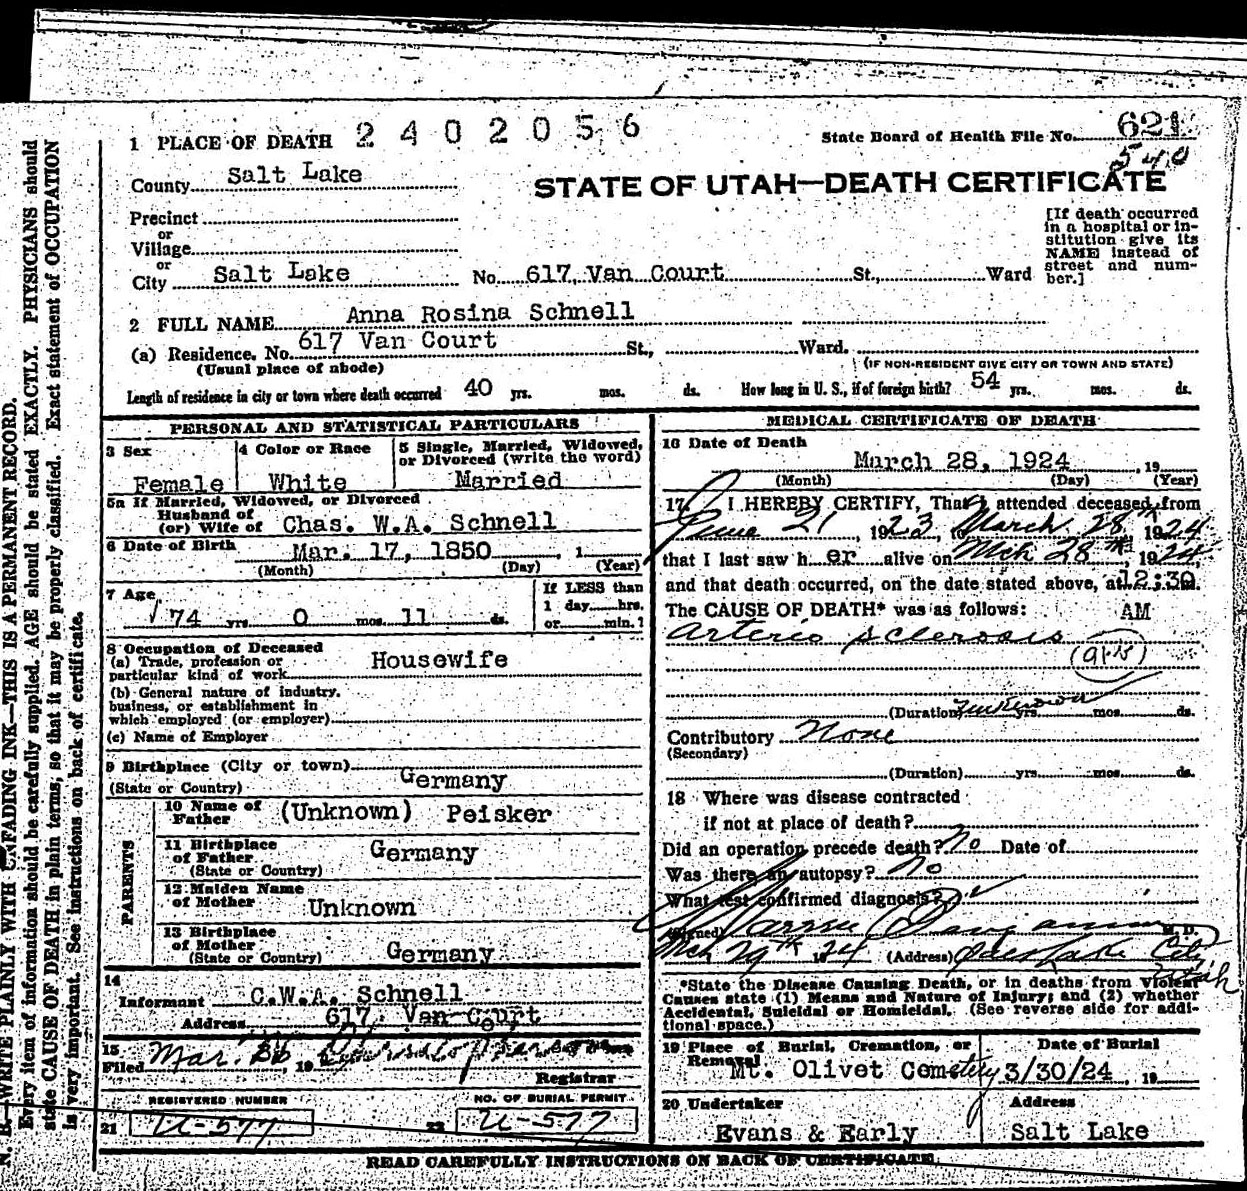 1 PLACE OF DEATH 2402056 State Board of Health File No. 621
540
County Salt Lake
STATE OF UTAH—DEATH CERTIFICATE
Precinct
or
Village
or
City Salt Lake No. 617 Van Court St., Ward
[If death occurred in a hospital or in-
stitution give its
NAME instead of
street and num-
ber.]
2 FULL NAME Anna Rosina Schnell
(a) Residence. No. 617 Van Court St., Ward.
(Usual place of abode) (IF NON-RESIDENT GIVE CITY OR TOWN AND STATE)
Length of residence in city or town where death occurred 40 yrs. mos. ds. How long in U. S., if of foreign birth? 54 yrs. mos. ds.
PERSONAL AND STATISTICAL PARTICULARS
3 Sex
Female
4 Color or Race
White
5 Single, Married, Widowed,
or Divorced (write the word)
Married
5a If Married, Widowed, or Divorced
Husband of
(or) Wife of Chas. W.A. Schnell
6 Date of Birth Mar. 17, 1850 , 1
(Month) (Day) (Year)
7 Age
74 yrs 0 mos 11 ds.
If LESS than
1 day hrs.
or min.?
8 Occupation of Deceased
(a) Trade, profession or
particular kind of work Housewife
(b) General nature of industry,
business, or establishment in
which employed (or employer)
(c) Name of Employer
9 Birthplace (City or town)
(State or Country) Germany
PARENTS
10 Name of
Father (Unknown) Peisker
11 Birthplace
of Father
(State or Country) Germany
12 Maiden Name
of Mother Unknown
13 Birthplace
of Mother
(State or Country) Germany
14
Informant C.W.A. Schnell
Address 617 Van Court
15
Filed Mar. , 19
Registrar
REGISTERED NUMBER
21 U-577
NO. OF BURIAL PERMIT
22 U-577
MEDICAL CERTIFICATE OF DEATH
16 Date of Death
March 28, 1924 , 19
(Month) (Day) (Year)
17 I HEREBY CERTIFY, That I attended deceased from
June 21 , 1923, to March 28th 1924
that I last saw her alive on Mch 28th, 1924,
and that death occurred, on the date stated above, at 12:30 m.
The CAUSE OF DEATH* was as follows: AM
Arterio Sclerosis
(Duration) unknown yrs. mos. ds.
Contributory None
(Secondary)
(Duration) yrs. mos. ds.
18 Where was disease contracted
if not at place of death?
Did an operation precede death? No Date of
Was there an autopsy? No
What test confirmed diagnosis?
(Signed) M. D.
Mch 29th 1924 (Address) Salt Lake City
Utah
*State the Disease Causing Death, or in deaths from Violent
Causes state (1) Means and Nature of Injury; and (2) whether
Accidental, Suicidal or Homicidal. (See reverse side for addi-
tional space.)
19 Place of Burial, Cremation, or
Removal
Mt. Olivet Cemetery
Date of Burial
3/30/24 , 19
20 Undertaker
Evans & Early
Address
Salt Lake
READ CAREFULLY INSTRUCTIONS ON BACK OF CERTIFICATE
N. B.—WRITE PLAINLY WITH UNFADING INK—THIS IS A PERMANENT RECORD.
Every item of information should be carefully supplied. AGE should be stated EXACTLY. PHYSICIANS should
state CAUSE OF DEATH in plain terms, so that it may be properly classified. Exact statement of OCCUPATION
is very important. See instructions on back of certificate.